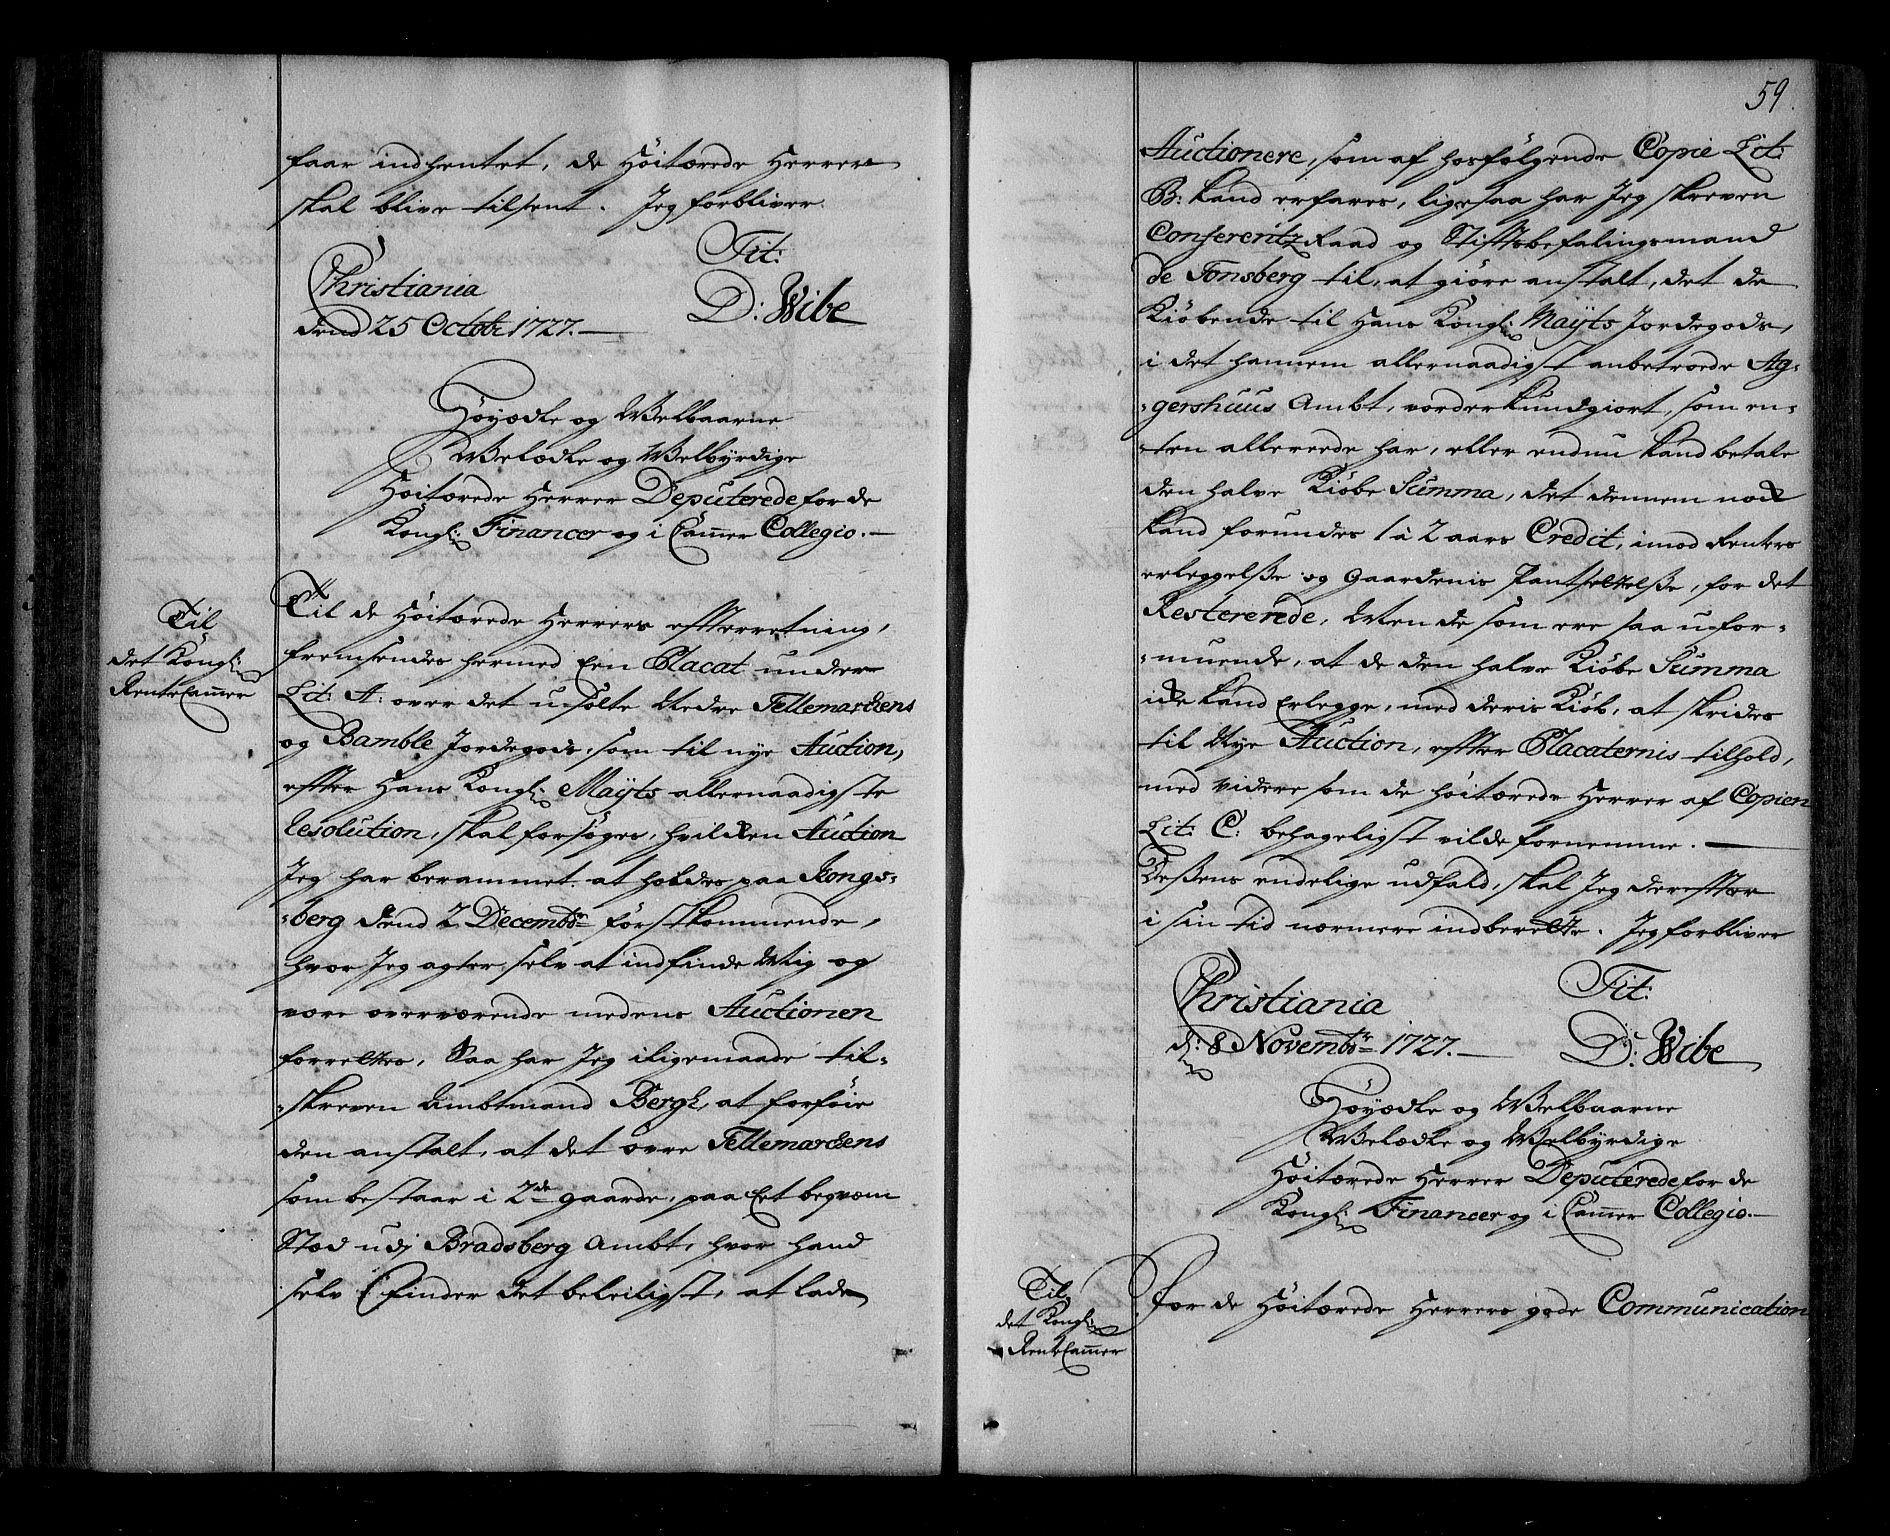 faar indhentet, de Høitærede Herrer
skal blive tilsent. Jeg forbliver
Tit:
Christiania
dend 25 Octobr 1727.
D: Wibe
Høyædle og Welbaarne
Welædle og Welbyrdige
Høitærede Herrer Deputerede for de
Kongl: Financer og i Cammer Collegio.
Til
det Kongl:
RenteCammer
Til de Høitærede Herrers efterretning,
fremsendes hermed Een Placat under
Lit: A: over det usolte Nedre Tellemarckens
og Bamble Jordegods, som til nye Auction,
effter Hans Kongl: Mayts allernaadigste
Resolution, skal forsøges, hvilcken Auction
Jeg har berammet at holdes paa Kongs-
-berg dend 2 Decembr førstkommende,
hvor Jeg agter selv at indfinde Mig og
være overværende medens Auctionen
forrettes, Saa har Jeg iligemaade til-
-skreven Ambtmand Bergh, at forføie
den anstalt, at det øvre Tellemarckens
som bestaar i 2de gaarde, paa Eet beqvæm
Stæd udj Bradsberg Ambt, hvor hand
selv finder det beleiligst, at lade
59.
Auctionere, som af hosfølgende Copie Lit:
B: kand erfares, ligesaa har Jeg skreven
ConferentzRaad og Stifftsbefalingsmand
de Tonsberg til, at giøre anstalt, det de
Kiøbende til Hans Kongl: Mayts Jordegods,
i det hannem allernaadigst anbetroede Ag-
-gershuus Ambt, vorder kundgiort, som en-
-ten allereede har, eller endnu kand betale
den halve Kiøbe Summa, det dennem nock
kand forundes 1 à 2 aars Credit, imod Renters
erleggelsse og Gaardenis Pantsettelsse, for det
Resterende, Men de som ere saa ufor-
-muende, at de den halve Kiøbe Summa
icke kand Erlegge, med deris Kiøb, at skrides
til Nye Auction, effter Placaternis tilhold,
med videre som de høitærede Herrer af Copien
Lit: C: behageligst vilde fornemme.
Dessens endelige udfald, skal Jeg dereffter
i sin tid nærmere indberette. Jeg forbliver
Christiania
d: 8 Novembr 1727.
Tit:
D: Wibe
Høyædle og Welbaarne
Welædle og Welbyrdige
Høitærede Herrer Deputerede for de
Kongl: Financer og i Cammer Collegio.
Til
det Kongl:
RenteCammer
For de Høitærede Herrers gode Communication